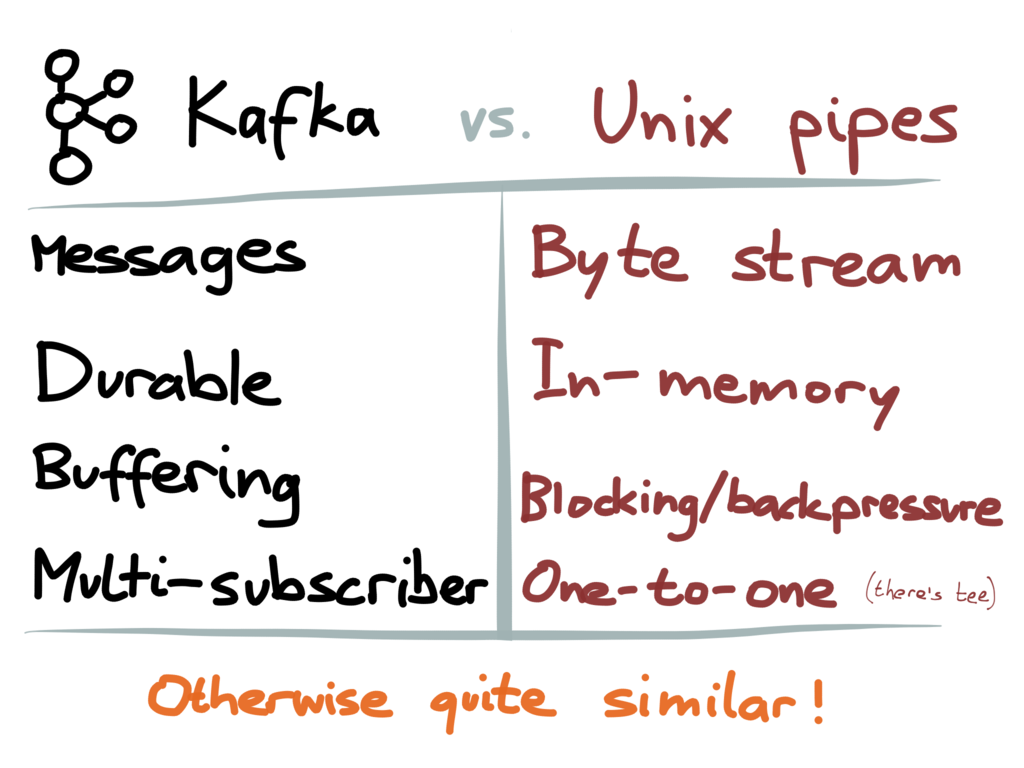 Kafka vs. Unix pipes
Messages Byte stream
Durable In-memory
Buffering Blocking/backpressure
Multi-subscriber One-to-one (there's tee)
Otherwise quite similar!